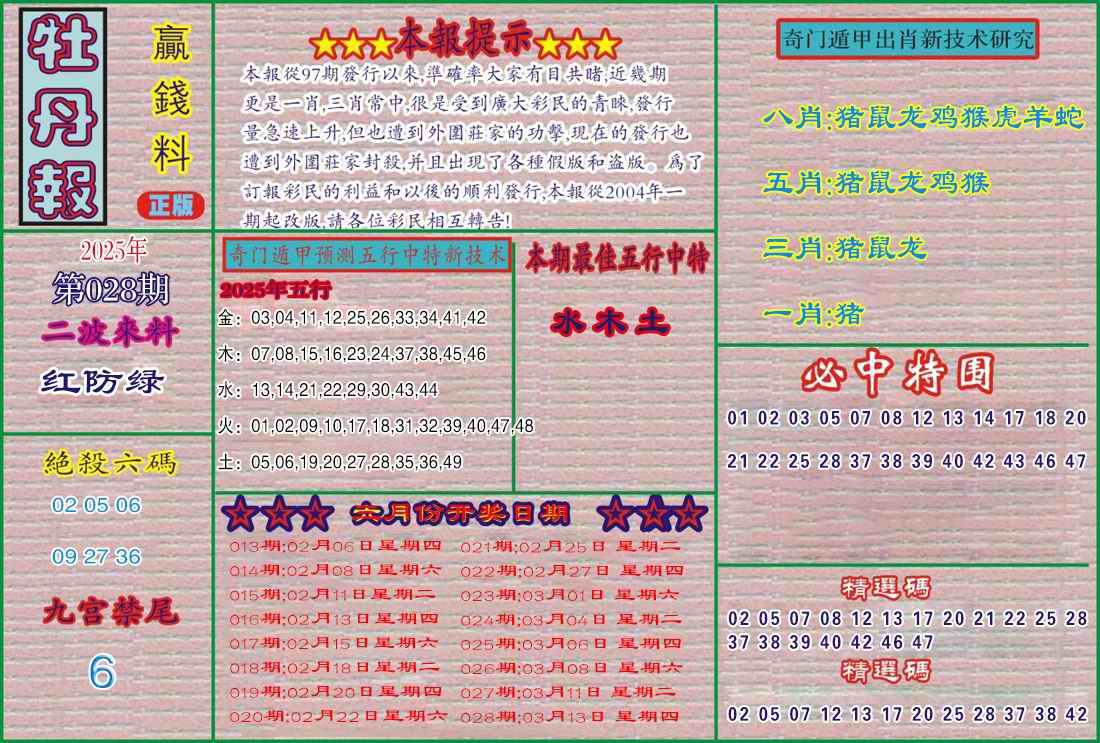 牡丹報
贏錢料
正版
★★★本報提示★★★
本報從97期發行以來,準確率大家有目共睹,近幾期
更是一肖,三肖常中,很是受到廣大彩民的青睞,發行
量急速上升,但也遭到外圍莊家的功擊,現在的發行也
遭到外圍莊家封殺,并且出現了各種假版和盗版。爲了
訂報彩民的利益和以後的順利發行,本報從2004年一
期起改版,請各位彩民相互轉告!
奇门遁甲出肖新技术研究
八肖:猪鼠龙鸡猴虎羊蛇
五肖:猪鼠龙鸡猴
三肖:猪鼠龙
一肖:猪
2025年
第028期
二波來料
红防绿
奇门遁甲预测五行中特新技术
2025年五行
金：03,04,11,12,25,26,33,34,41,42
木：07,08,15,16,23,24,37,38,45,46
水：13,14,21,22,29,30,43,44
火：01,02,09,10,17,18,31,32,39,40,47,48
土：05,06,19,20,27,28,35,36,49
本期最佳五行中特
水木土
必中特围
01 02 03 05 07 08 12 13 14 17 18 20
21 22 25 28 37 38 39 40 42 43 46 47
絕殺六碼
02 05 06
09 27 36
九宫禁尾
6
☆☆☆ 六月份开奖日期 ☆☆☆
013期:02月06日星期四 021期:02月25日 星期二
014期:02月08日星期六 022期:02月27日 星期四
015期:02月11日星期二 023期:03月01日 星期六
016期:02月13日星期四 024期:03月04日 星期二
017期:02月15日星期六 025期:03月06日 星期四
018期:02月18日星期二 026期:03月08日 星期六
019期:02月20日星期四 027期:03月11日 星期二
020期:02月22日星期六 028期:03月13日 星期四
精選碼
02 05 07 08 12 13 17 20 21 22 25 28
37 38 39 40 42 46 47
精選碼
02 05 07 12 13 17 20 25 28 37 38 42